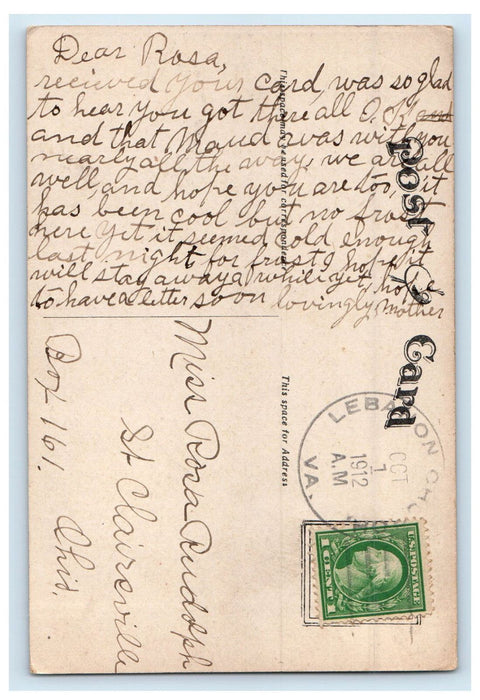 Dear Rosa,
recieved your card, was so glad
to hear you got there all O.K. and
and that Maud was with you
nearly all the way, we are all
well, and hope you are too, it
has been cool but no frost
here yet it seemed cold enough
last night for frost I hope it
will stay away a while yet, hope
to have a letter soon lovingly Mother
This space may be used for correspondence
Post Card
This space for Address
Miss Rosa Rudolph
St Clairsville
Box 161. Ohio.
LEBANON CH
OCT
1
1912
A.M
VA.
U.S. POSTAGE
1 CENT 1